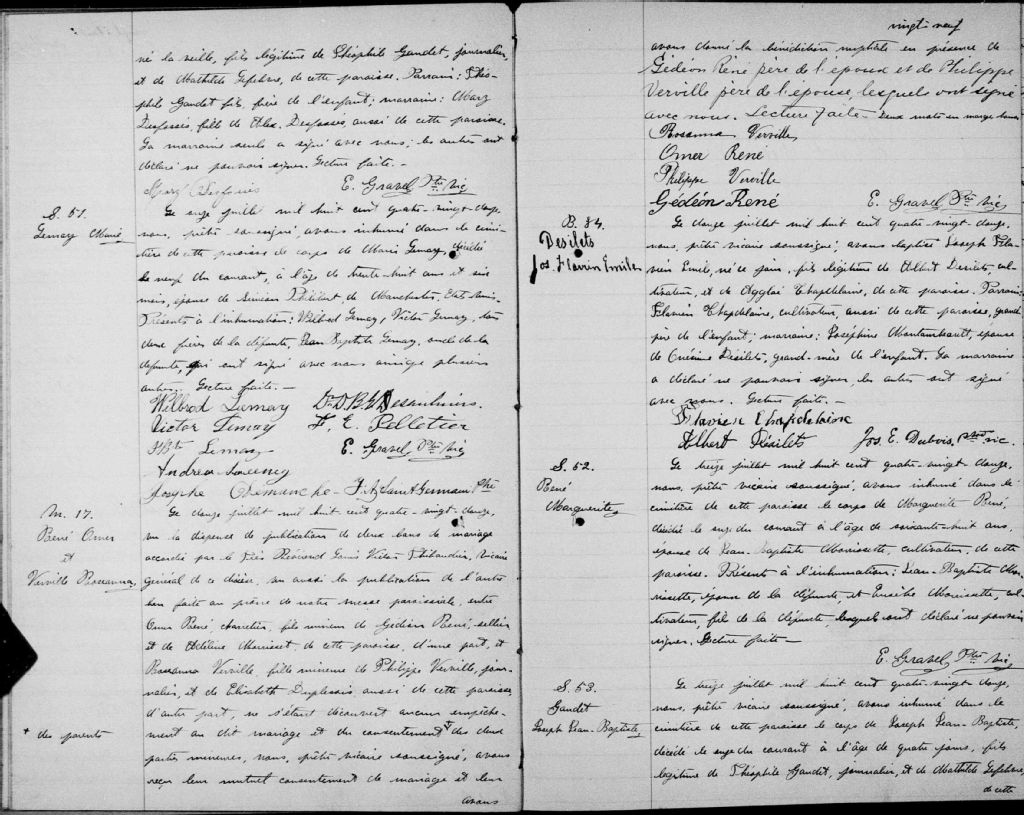 né la veille, fils légitime de Théophile Gaudet, journalier,
et de Mathilde Lefebvre, de cette paroisse. Parrain: Théo-
phile Gaudet fils, frère de l'enfant; marraine: Mary
Desfossés, fille de Alex. Desfossés, aussi de cette paroisse.
La marraine seule a signé avec nous; les autres ont
déclaré ne pouvoir signer. Lecture faite. —
Mary Desfossés E. Gravel Ptre Vic
S. 51.
Lemay Marie
Le onze juillet mil huit cent quatre-vingt-douze,
nous, prêtre soussigné, avons inhumé dans le cime-
tière de cette paroisse le corps de Marie Lemay, décédée
le neuf du courant, à l'âge de trente huit ans et six
mois, épouse de de Manchester, Etats-Unis.
Présents à l'inhumation: Wilbrod Lemay, Victor Lemay, tous
deux frères de la défunte, Jean Baptiste Lemay, oncle de la
défunte, qui ont signé avec nous ainsi que plusieurs
autres. Lecture faite. —
Wilbrod Lemay Dr D.B. Desaulniers.
Victor Lemay F. E. Pelletier
JBte Lemay E. Gravel Ptre Vic
Andrew
Dimanche - F. A. Saint Germain Ptre
M. 17.
René Omer
et
Verville Roseanna,
Le douze juillet mil huit cent quatre-vingt-douze,
vu la dispense de publication de deux bans de mariage
accordée par le Très Révérend Louis Victor Thibaudier, Vicaire
Général de ce diocèse, vu aussi la publication de l'autre
ban faite au prône de notre messe paroissiale, entre
Omer René, charretier, fils mineur de Gédéon René, sellier
et de Adéline Morisset, de cette paroisse, d'une part, et
Roseanna Verville, fille mineure de Philippe Verville, jour-
nalier, et de Elisabeth Duplessis, aussi de cette paroisse,
d'autre part, ne s'étant découvert aucun empêche-
ment au dit mariage et du consentement + des deux
+ des parents
parties mineures, nous, prêtre vicaire soussigné, avons
reçu leur mutuel consentement de mariage et leur
avons
vingt-neuf
avons donné la bénédiction nuptiale en présence de
Gédéon René père de l'époux et de Philippe
Verville père de l'épouse, lesquels ont signé
avec nous. Lecture faite — deux mots en marge bons
Rosanna Verville
Omer René
Philippe Verville
Gédéon René E. Gravel Ptre Vic
B. 84.
Desilets
Jos. Flavien Emile
Le douze juillet mil huit cent quatre-vingt-douze,
nous, prêtre vicaire soussigné, avons baptisé Joseph Fla-
vien Emile, né ce jour, fils légitime de Albert Desilets, cul-
tivateur, et de Agglaé Chapdelaine, de cette paroisse. Parrain:
Flavien Chapdelaine, cultivateur, aussi de cette paroisse, grand
père de l'enfant; marraine: Joséphine Montambault, épouse
de Onésime Désilets, grand-mère de l'enfant. La marraine
a déclaré ne pouvoir signer, les autres ont signé
avec nous. Lecture faite. —
Flavien Chapdelaine
Albert Désilets Jos. E. Dubois, ptre vic.
S. 52.
René
Marguerite
Le treize juillet mil huit cent quatre-vingt-douze,
nous, prêtre vicaire soussigné, avons inhumé dans le
cimetière de cette paroisse le corps de Marguerite René,
décédée le onze du courant à l'âge de soixante-huit ans,
épouse de Jean-Baptiste Morissette, cultivateur, de cette
paroisse. Présents à l'inhumation: Jean-Baptiste Mo-
rissette, époux de la défunte, et Eusèbe Morissette, cul-
tivateur, fils de la défunte, lesquels ont déclaré ne pouvoir
signer. Lecture faite —
E. Gravel Ptre Vic
S. 53.
Gaudet
Joseph Jean-Baptiste
Le treize juillet mil huit cent quatre-vingt-douze,
nous, prêtre vicaire soussigné, avons inhumé dans le
cimetière de cette paroisse le corps de Joseph Jean-Baptiste,
décédé le onze du courant à l'âge de quatre jours, fils
légitime de Théophile Gaudet, journalier, et de Mathilde Lefebvre,
de cette